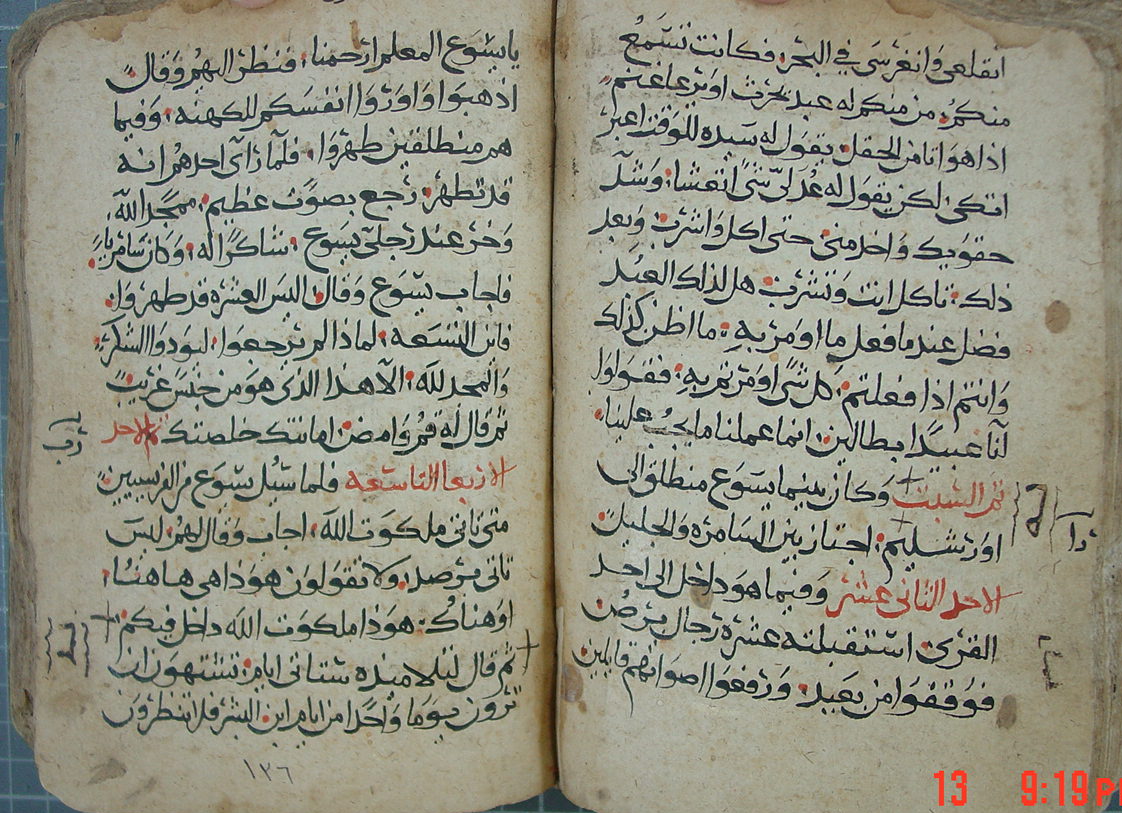 انقلعي وانغرسي في البحر؛ فكانت تسمع
منكم؛ من منكم له عبد يحرث او يرعا غنم
اذا هو اتا من الحقل؛ يقول له سيده للوقت اعبر
اتكي؛ لكن يقول له عد لي شي اتعشا؛ وشد
حقويك واخدمني؛ حتى اكل واشرب؛ وبعد
ذلك؛ تاكل انت وتشرب؛ هل لذلك العبد
فضل عندما فعل ما اومر به؛ ما اظن كذلك
وانتم اذا فعلتم؛ كل شي اومرتم به؛ فقولوا
اننا عبيدا بطالين؛ انما عملنا ما يجب علينا؛
تم السبت وكان بينما يسوع منطلق الى
اورشليم؛ اجتاز بين السامره والجليل؛
الاحد الثاني عشر وفيما هو داخل الى احد
القرى؛ استقبلته عشره رجال برص؛
فوقفوا من بعيد؛ ورفعوا اصواتهم قايلين
يا يسوع المعلم ارحمنا؛ فنظر اليهم وقال
اذهبوا واوروا انفسكم للكهنه؛ وفيما
هم منطلقين طهروا؛ فلما راى احدهم انه
قد تطهر؛ رجع بصوت عظيم؛ ممجد الله؛
وخر عند رجلي يسوع؛ شاكرا له؛ وكان سامريا؛
فاجاب يسوع وقال؛ اليس العشره قد طهروا؛
فاين التسعه؛ لماذا لم يرجعوا؛ ليودوا الشكر
والمجد لله؛ الا هذا الذي هو من جنس غريب
ثم قال له قم وامض؛ امانتك خلصتك تم الاحد
الاربعا التاسعه فلما سيل يسوع من الفريسيين
متى تاتي ملكوت الله؛ اجاب وقال لهم؛ ليس
تاتي برصد؛ ولا تقولون هوذا هي هاهنا؛
او هناك؛ هوذا ملكوت الله داخل فيكم؛
ثم قال لتلاميذه ستاتي ايام؛ تشتهون ان
ترون يوما واحدا من ايام ابن البشر فلا تنظرون
١٣٦
13 9:19